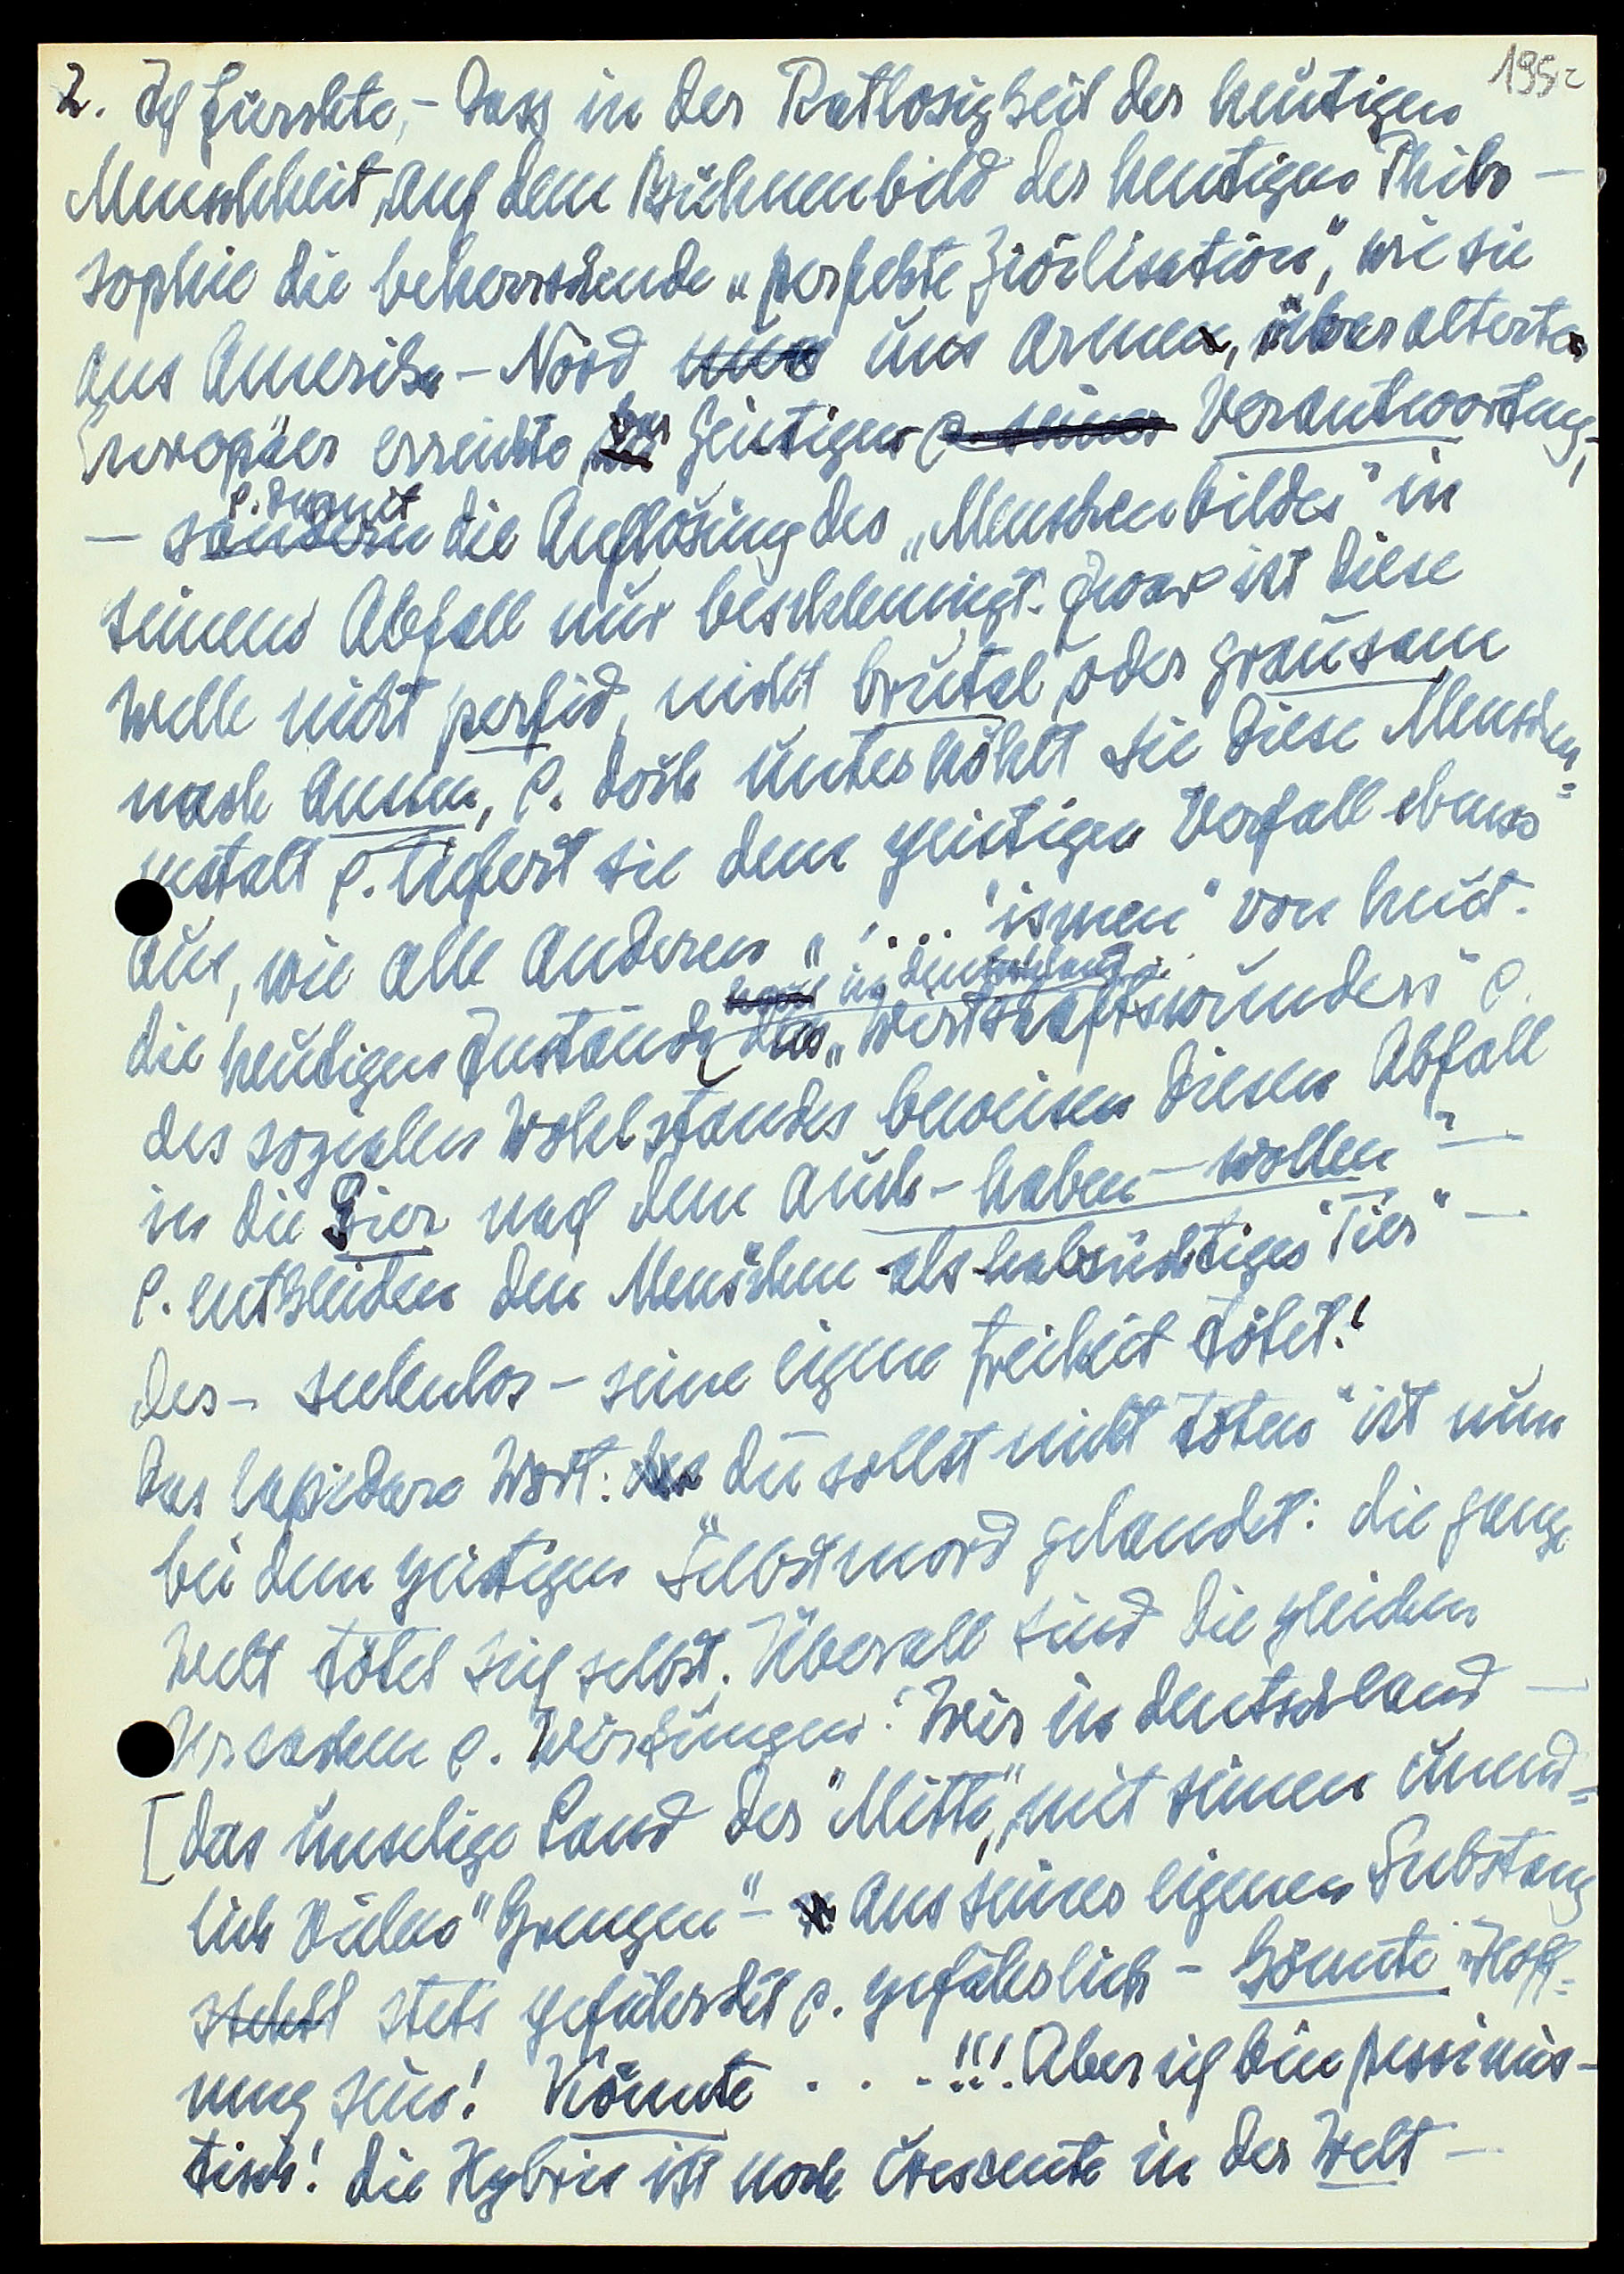 195
2. Ich fürchte, – dass in der Ratlosigkeit der heutigen
Menschheit, auf dem Bühnenbild der heutigen Philo –
sophie die beherrschende „perfekte Zivilisation", wie sie
aus Amerika – Nord uns arme, überalterte
Europäer erreichte, der geistigen Verantwortung,
– u. damit die Auflösung des „Menschenbildes" in
seinem Abfall nur beschleunigt. Zwar ist diese
Welle nicht perfid, nicht brutal oder grausam
nach Aussen, u. doch unterhöhlt sie diese Menschen=
gestalt u. liefert sie dem geistigen Verfall ebenso
aus, wie alle anderen „ .... ismen" von heut.
in Deutschland
die heutigen Zustände des „Wirtschaftswunders" u.
des sozialen Wohlstandes beweisen diesen Abfall
in die Gier nach dem auch – haben – wollen" –
u. entkleiden den Menschen als habsüchtiges "Tier" –
der – seelenlos – seine eigene Freiheit tötet!
Das lapidare Wort: du sollst nicht töten" ist nun
bei dem geistigen Selbstmord gelandet: die ganze
Welt tötet sich selbst. Überall sind die gleichen
Ursachen u. Wirkungen: Wir in Deutschland –
[das unselige Land der "Mitte", mit seinen unend=
lich vielen "Grenzen" – aus seiner eigenen Substanz
stets gefährdet u. gefährlich – könnte Hoff=
nung sein! Könnte . . . !!! Aber ich bin pessimis –
tisch! die Hybris ist noch in der Welt –